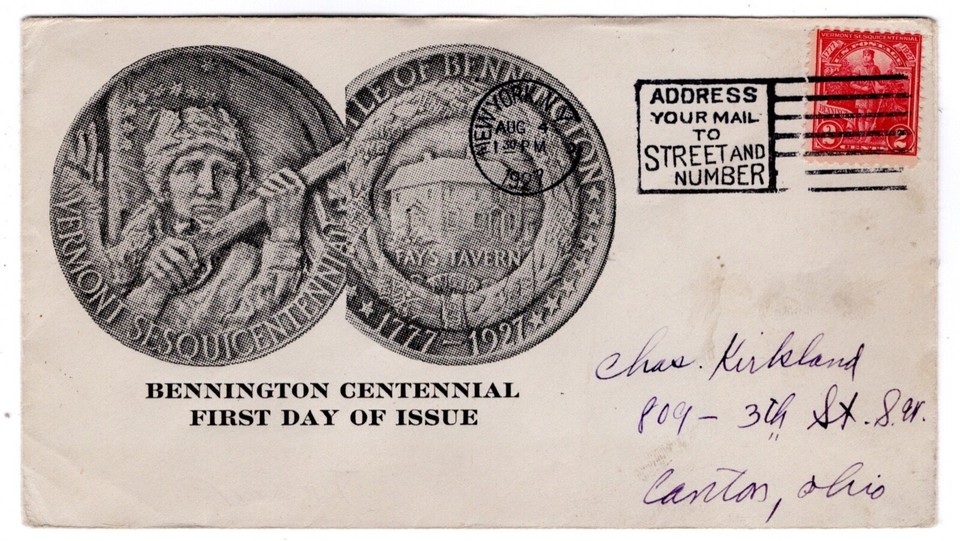 VERMONT SESQUICENTENNIAL
BATTLE OF BENNINGTON
FAY'S TAVERN
1777-1927
BENNINGTON CENTENNIAL
FIRST DAY OF ISSUE
NEW YORK, N.Y.
AUG 4
1 30 PM
1927
ADDRESS
YOUR MAIL
TO
STREET AND
NUMBER
VERMONT SESQUICENTENNIAL
U.S. POSTAGE
2 CENTS 2
Chas. Kirkland
809 - 3th St. S.W.
Canton, Ohio